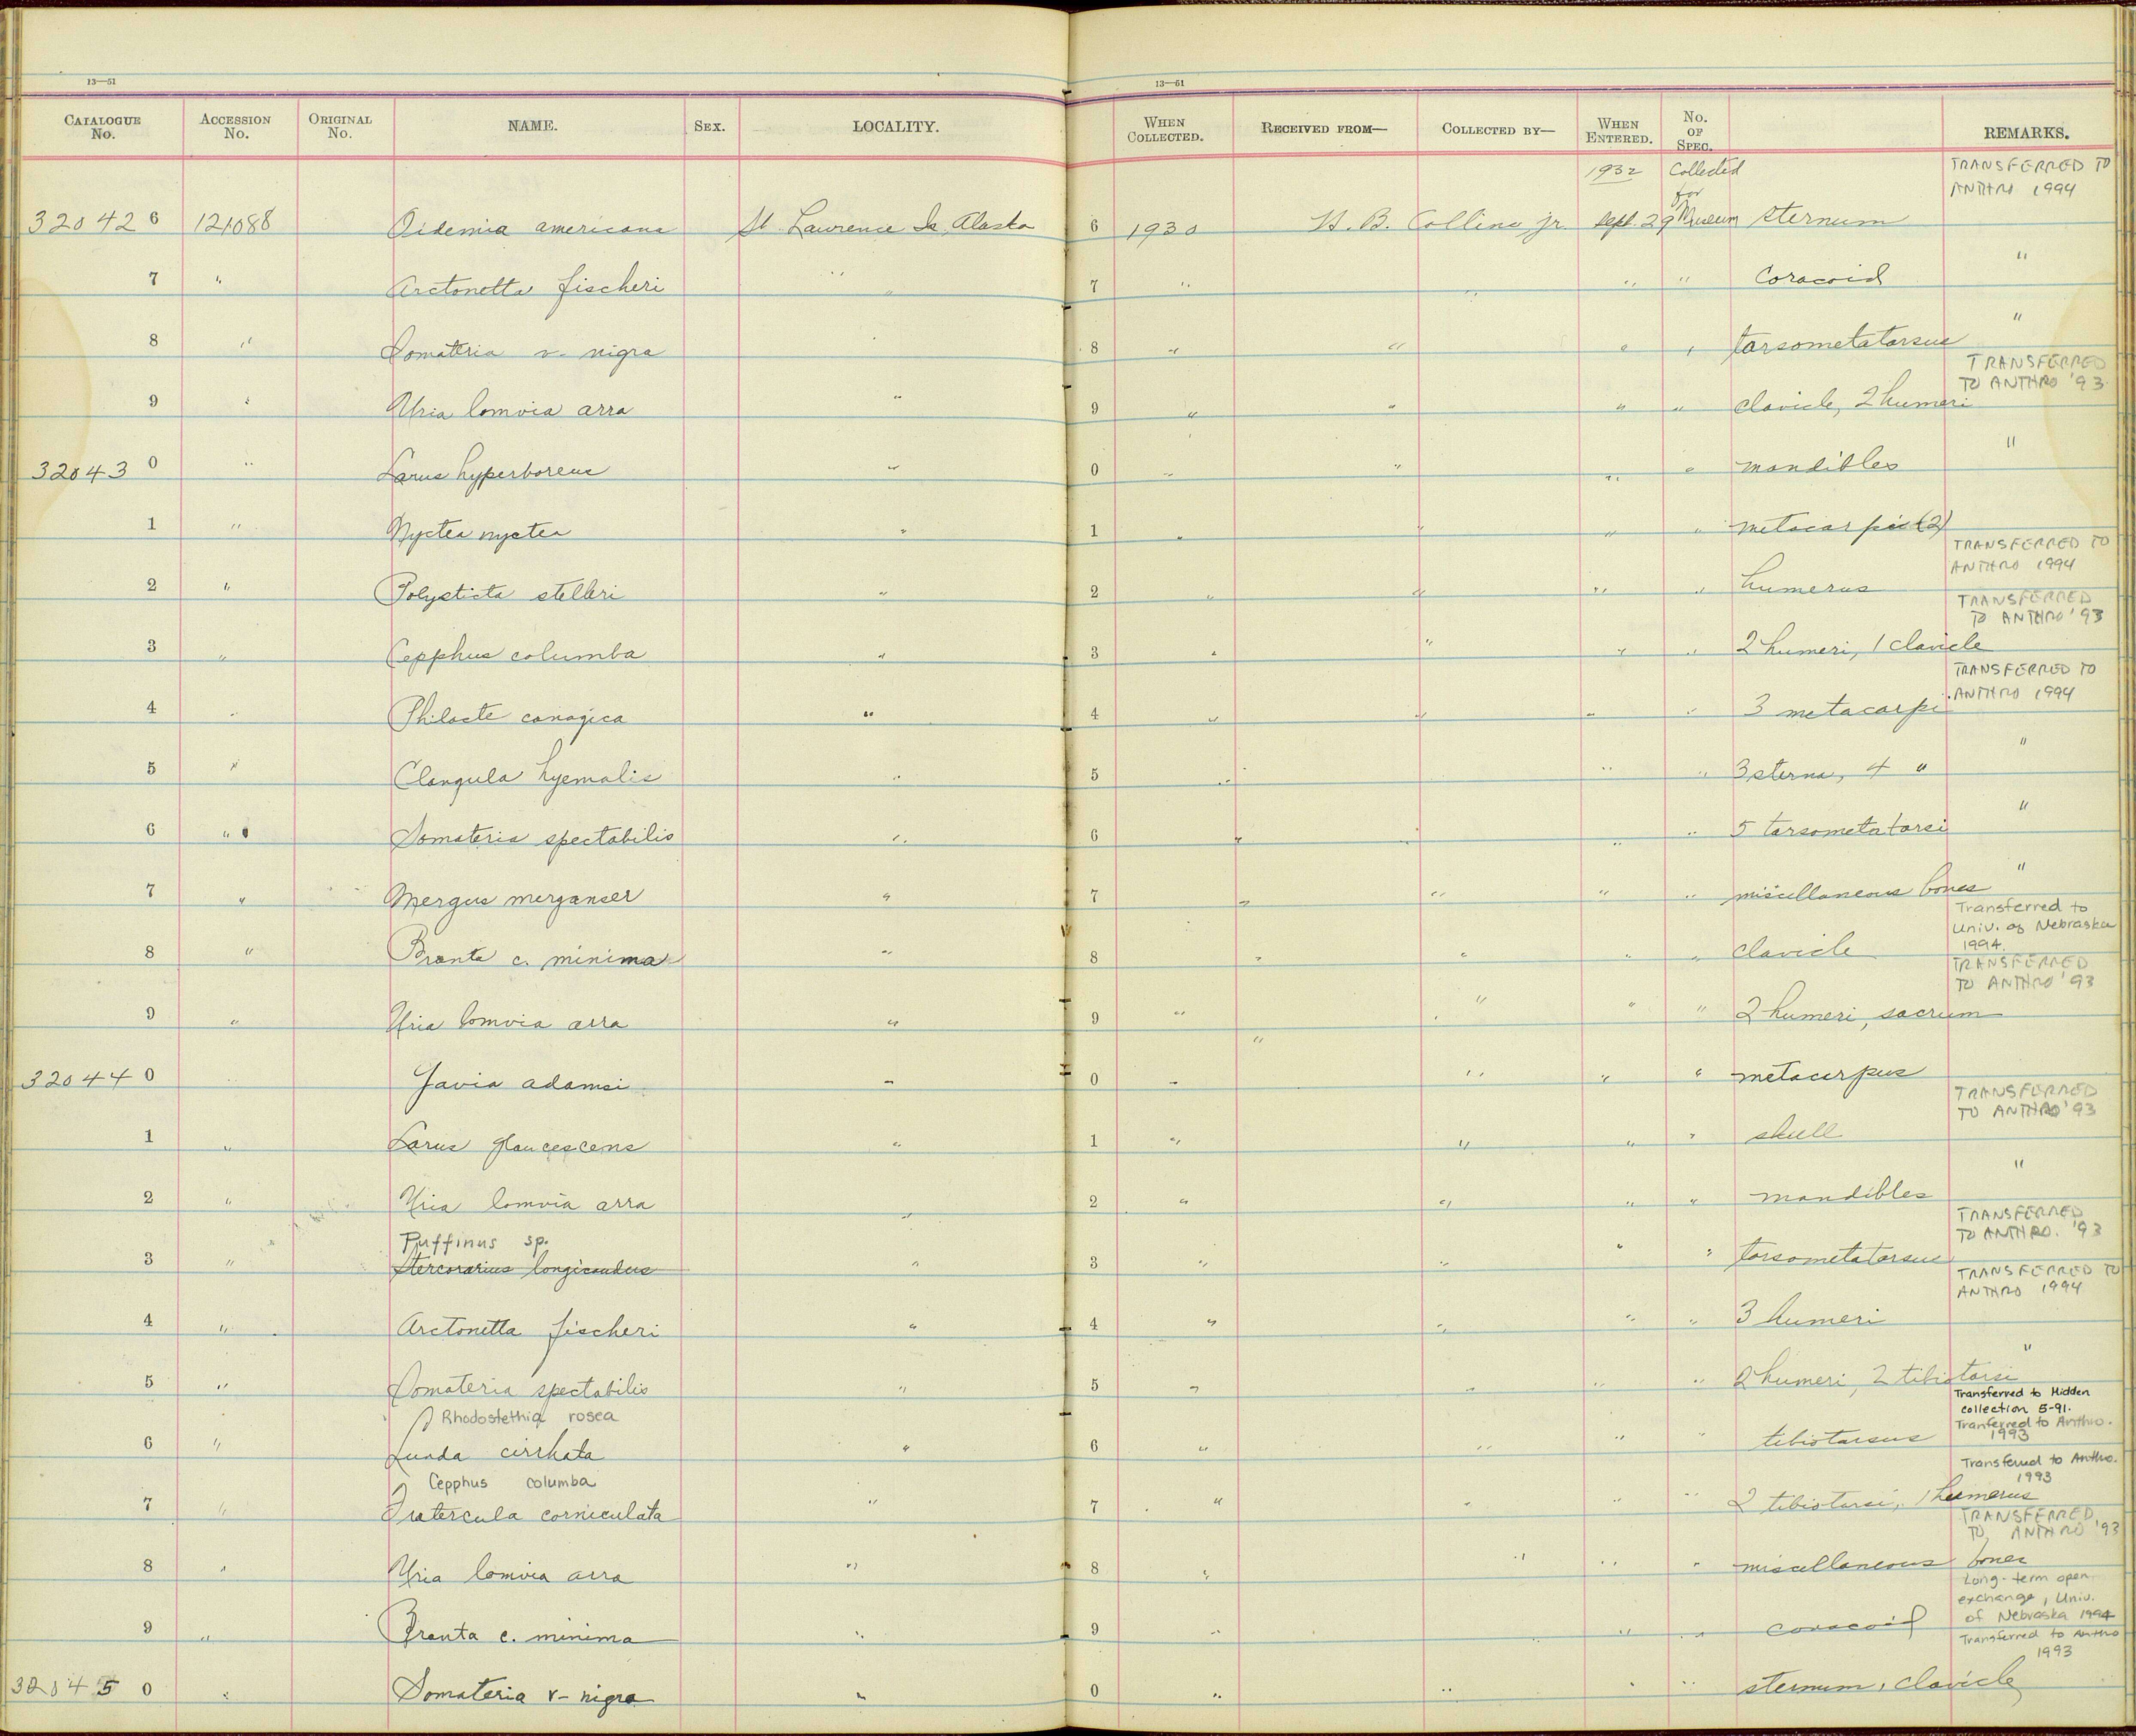 13—51
13—51
CATALOGUE No. ACCESSION No. ORIGINAL No. NAME. SEX. LOCALITY. WHEN COLLECTED. RECEIVED FROM— COLLECTED BY— WHEN ENTERED. No. OF SPEC. REMARKS.
1932 Collected for Museum TRANSFERRED TO ANTHRO 1994
32042 6 121088 Oidemia americana St. Lawrence Is. Alaska 6 1930 H. B. Collins, jr. Sept. 29 sternum
7 " Arctonetta fischeri " 7 " " " " Coracoid "
8 " Somateria v- nigra " 8 " " " " tarsometatarsus "
TRANSFERRED TO ANTHRO '93
9 " Uria lomvia arra " 9 " " " " clavicle, 2 humeri
32043 0 " Larus hyperboreus " 0 " " " " mandibles "
1 " Nyctea nyctea " 1 " " " " metacarpi (2)
TRANSFERRED TO ANTHRO 1994
2 " Polysticta stelleri " 2 " " " " humerus
TRANSFERRED TO ANTHRO '93
3 " Cepphus columba " 3 " " " " 2 humeri, 1 clavicle
TRANSFERRED TO ANTHRO 1994
4 " Philacte canagica " 4 " " " " 3 metacarpi
5 " Clangula hyemalis " 5 " " " " 3 sterna, 4 " "
6 " Somateria spectabilis " 6 " " " " 5 tarsometatarsi "
7 " Mergus merganser " 7 " " " " miscellaneous bones "
Transferred to Univ. of Nebraska 1994.
8 " Branta c. minima " 8 " " " " clavicle
TRANSFERRED TO ANTHRO '93
9 " Uria lomvia arra " 9 " " " " 2 humeri, sacrum
32044 0 " Gavia adamsi " 0 " " " " metacarpus
TRANSFERRED TO ANTHRO '93
1 " Larus glaucescens " 1 " " " " skull
2 " Uria lomvia arra " 2 " " " " mandibles "
Puffinus sp. TRANSFERRED TO ANTHRO. '93
3 " Stercorarius longicaudus " 3 " " " " tarsometatarsus
TRANSFERRED TO ANTHRO 1994
4 " Arctonetta fischeri " 4 " " " " 3 humeri
5 " Somateria spectabilis " 5 " " " " 2 humeri, 2 tibiotarsi "
Rhodostethia rosea Transferred to Midden collection 5-91. Tranferred to Anthro. 1993
6 " Lunda cirrhata " 6 " " " " tibiotarsus
Cepphus columba Transferred to Anthro. 1993
7 " Fratercula corniculata " 7 " " " " 2 tibiotarsi, 1 humerus
TRANSFERRED TO ANTHRO '93
8 " Uria lomvia arra " 8 " " " " miscellaneous bones
Long-term open exchange, Univ. of Nebraska 1994
9 " Branta c. minima " 9 " " " " coracoid
Transferred to Anthro 1993
32045 0 " Somateria v- nigra " 0 " " " " sternum, clavicle